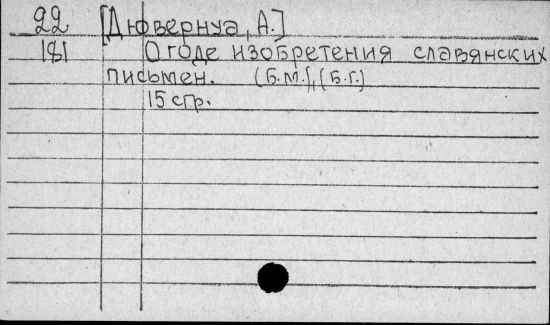 22 [Дювернуа, А.]
181 О годе изобретения славянских
письмен. (Б.М.), (Б.Г.)
15 стр.